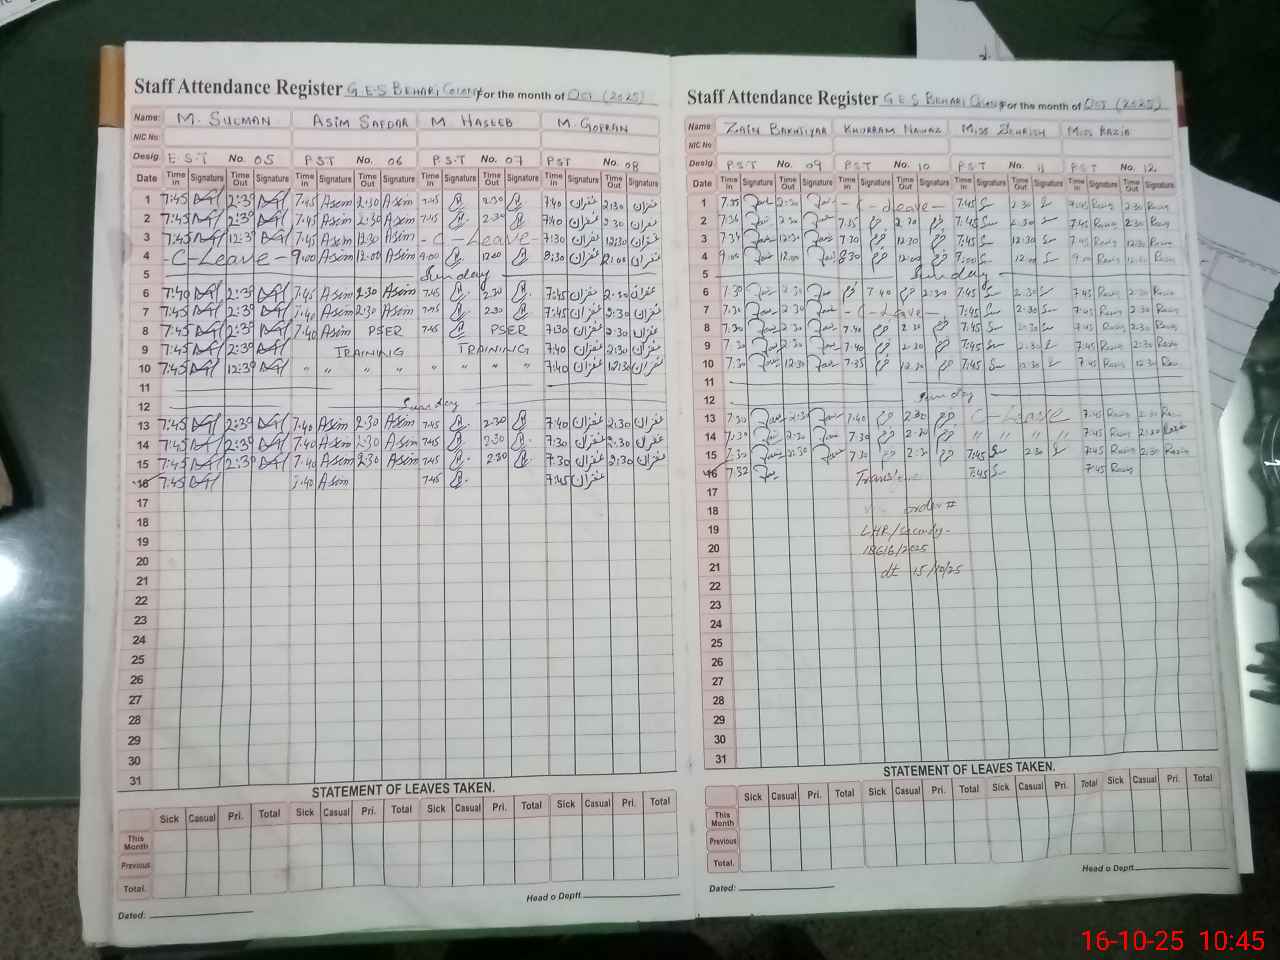 Staff Attendance Register G.E.S BEHARI COLONY For the month of Oct (2025)
Name: M. SULMAN ASIM SAFDAR M. HASEEB M. GOFRAN
NIC No.
Desig. E.S.T No. 05 PST No. 06 P.S.T No. 07 PST No. 08
Date Time In Signature Time Out Signature Time In Signature Time Out Signature Time In Signature Time Out Signature Time In Signature Time Out Signature
1 7:45 2:30 7:45 Asim 2:30 Asim 7:45 2:30 7:40 غفران 2:30 غفران
2 7:45 2:30 7:45 Asim 2:30 Asim 7:45 2:30 7:40 غفران 2:30 غفران
3 7:45 12:30 7:45 Asim 12:30 Asim - C - Leave - 7:30 غفران 12:30 غفران
4 - C - Leave - 9:00 Asim 12:00 Asim 9:00 12:00 8:30 غفران 12:00 غفران
5 Sunday
6 7:40 2:30 7:45 Asim 2:30 Asim 7:45 2:30 7:45 غفران 2:30 غفران
7 7:45 2:30 7:40 Asim 2:30 Asim 7:45 2:30 7:45 غفران 2:30 غفران
8 7:45 2:30 7:40 Asim PSER 7:45 PSER 7:30 غفران 2:30 غفران
9 7:45 2:30 TRAINING TRAINING 7:40 غفران 2:30 غفران
10 7:45 12:30 " " " " " " " 7:40 غفران 12:30 غفران
11
12 Sunday
13 7:45 2:30 7:40 Asim 2:30 Asim 7:45 2:30 7:40 غفران 2:30 غفران
14 7:45 2:30 7:40 Asim 2:30 Asim 7:45 2:30 7:30 غفران 2:30 غفران
15 7:45 2:30 7:40 Asim 2:30 Asim 7:45 2:30 7:30 غفران 2:30 غفران
16 7:45 7:40 Asim 7:45 7:45 غفران
17
18
19
20
21
22
23
24
25
26
27
28
29
30
31
STATEMENT OF LEAVES TAKEN.
Sick Casual Pri. Total Sick Casual Pri. Total Sick Casual Pri. Total Sick Casual Pri. Total
This Month
Previous
Total.
Head o Deptt
Dated:
Staff Attendance Register G E S BEHARI COLONY For the month of Oct (2025)
Name: ZAIN BAKHTIYAR KHURRAM NAWAZ MISS SEHRISH MISS RAZIA
NIC No
Desig. P.S.T No. 09 P.S.T No. 10 P.S.T No. 11 P.S.T No. 12
Date Time In Signature Time Out Signature Time In Signature Time Out Signature Time In Signature Time Out Signature Time In Signature Time Out Signature
1 7:35 2:30 - C - Leave - 7:45 2:30 7:45 Razia 2:30 Razia
2 7:34 2:30 7:35 2:30 7:45 2:30 7:45 Razia 2:30 Razia
3 7:34 12:30 7:30 12:30 7:45 12:30 7:45 Razia 12:30 Razia
4 9:00 12:00 8:30 12:00 9:00 12:00 9:00 Razia 12:00 Razia
5 Sunday
6 7:30 2:30 7:40 2:30 7:45 2:30 7:45 Razia 2:30 Razia
7 7:30 2:30 - C - Leave - 7:45 2:30 7:45 Razia 2:30 Razia
8 7:30 2:30 7:40 2:30 7:45 2:30 7:45 Razia 2:30 Razia
9 7:30 2:30 7:40 2:30 7:45 2:30 7:45 Razia 2:30 Razia
10 7:30 12:30 7:35 12:30 7:45 12:30 7:45 Razia 12:30 Razia
11
12 Sunday
13 7:30 2:30 7:40 2:30 C - Leave 7:45 Razia 2:30 Razia
14 7:30 2:30 7:30 2:30 " " " " 7:45 Razia 2:30 Razia
15 7:30 2:30 7:30 2:30 7:45 2:30 7:45 Razia 2:30 Razia
16 7:32 7:45 7:45 Razia
17
18 order #
19 LHR/Secondry-
20 18616/2025
21 dt 15/10/25
22
23
24
25
26
27
28
29
30
31
STATEMENT OF LEAVES TAKEN.
Sick Casual Pri. Total Sick Casual Pri. Total Sick Casual Pri. Total Sick Casual Pri. Total
This Month
Previous
Total.
Head o Deptt
Dated:
16-10-25 10:45